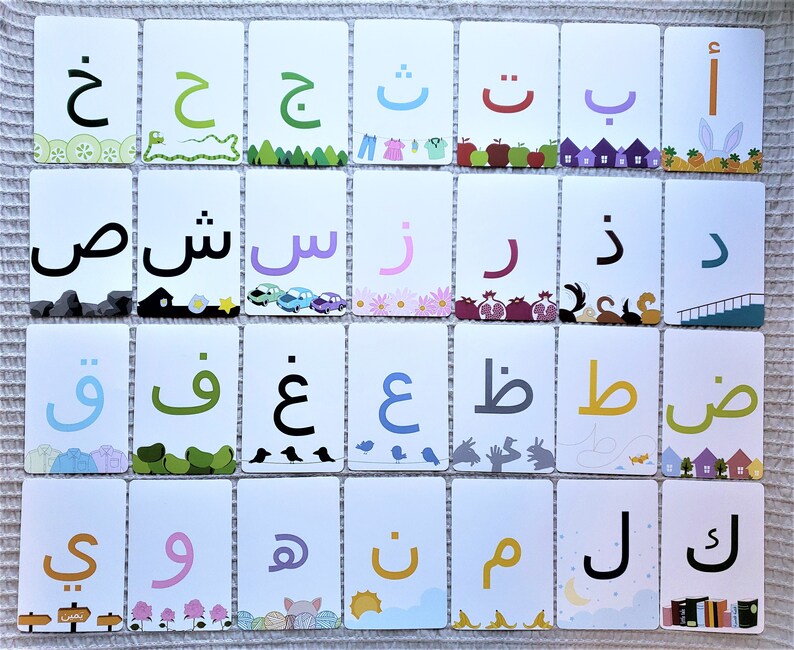 أ ب ت ث ج ح خ
د ذ ر ز س ش ص
ض ط ظ ع غ ف ق
ك ل م ن ه و ي
يمين